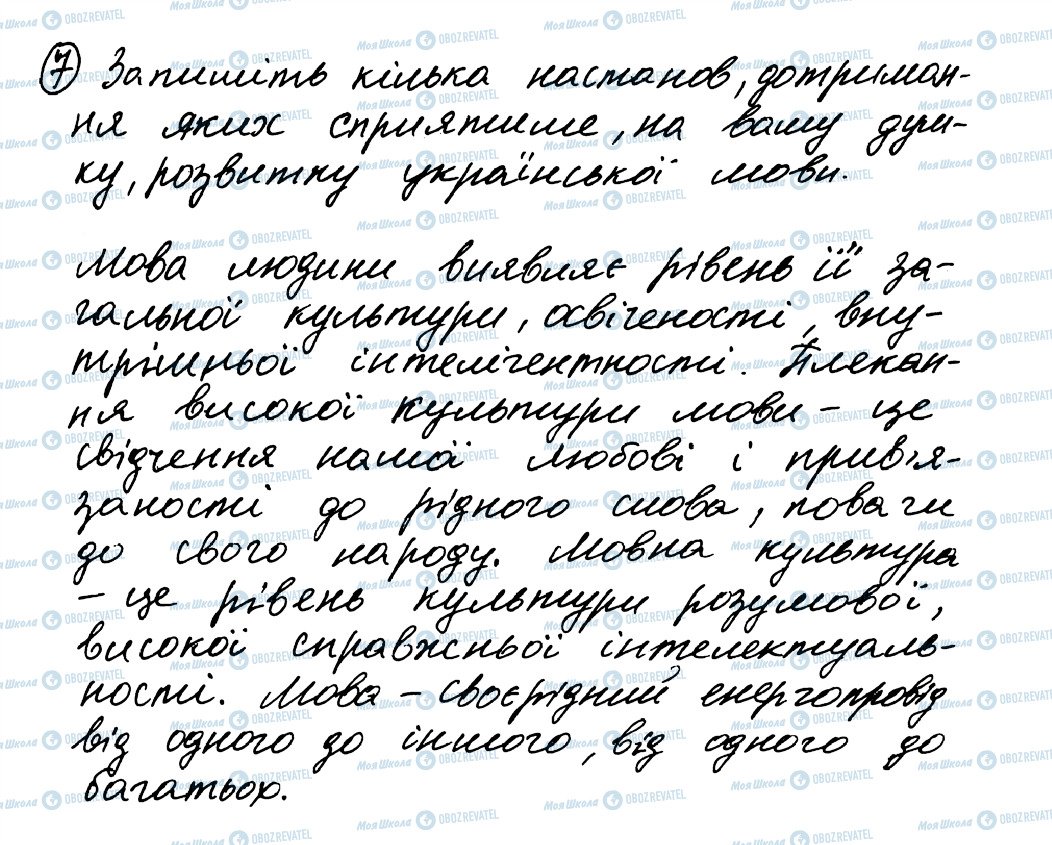 7 Запишіть кілька настанов, дотриман-
ня яких сприятиме, на вашу дум-
ку, розвитку української мови.
Мова людини виявляє рівень її за-
гальної культури, освіченості, вну-
трішньої інтелігентності. Плекан-
ня високої культури мови – це
свідчення нашої любові і прив'я-
заності до рідного слова, поваги
до свого народу. Мовна культура
– це рівень культури розумової,
високої справжньої інтелектуаль-
ності. Мова – своєрідний енергопровід
від одного до іншого, від одного до
багатьох.